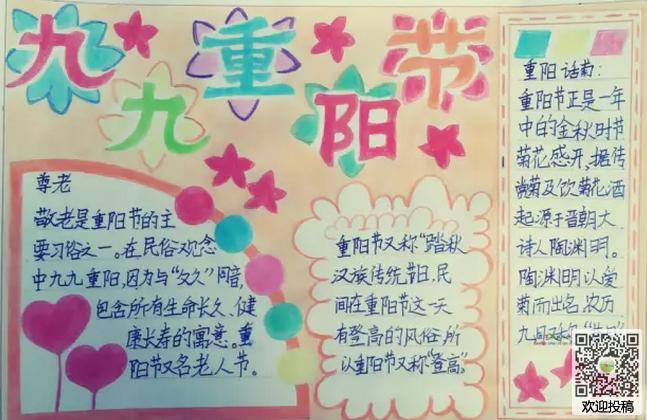 九九重阳节
尊老
敬老是重阳节的主
要习俗之一。在民俗观念
中九九重阳,因为与“久久”同音,
包含所有生命长久、健
康长寿的寓意。重
阳节又名老人节。
重阳节又称“踏秋”
汉族传统节日,民
间在重阳节这一天
有登高的风俗,所
以重阳节又称“登高”。
重阳话菊:
重阳节正是一年
中的金秋时节
菊花盛开,据传
赏菊及饮菊花酒
起源于晋朝大
诗人陶渊明。
陶渊明以爱
菊而出名,农历
九月
欢迎投稿